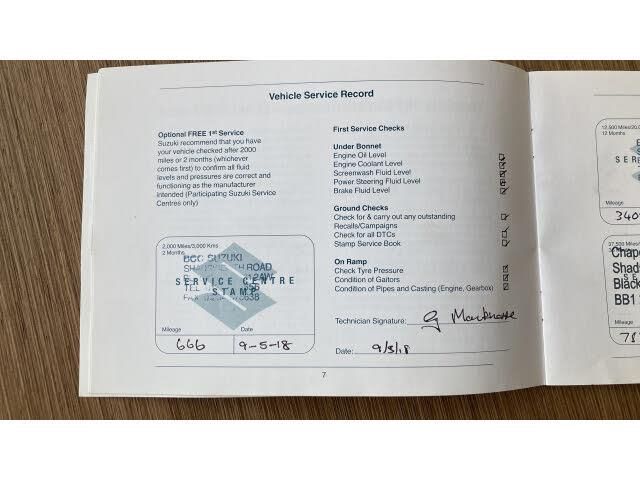 Vehicle Service Record
Optional FREE 1st Service
Suzuki recommend that you have
your vehicle checked after 2000
miles or 2 months (whichever
comes first) to confirm all fluid
levels and pressures are correct and
functioning as the manufacturer
intended (Participating Suzuki Service
Centres only)
2,000 Miles/3,000 Kms
2 Months
SUZUKI
ROAD
SERVICE CENTRE
STAMP
TEL
FAX
Mileage
Date
666
9-5-18
First Service Checks
Under Bonnet
Engine Oil Level
Engine Coolant Level
Screenwash Fluid Level
Power Steering Fluid Level
Brake Fluid Level
Ground Checks
Check for & carry out any outstanding
Recalls/Campaigns
Check for all DTCs
Stamp Service Book
On Ramp
Check Tyre Pressure
Condition of Gaitors
Condition of Pipes and Casting (Engine, Gearbox)
Technician Signature:
Date: 9/5/18
7
12 Months
SER
Mileage
340
Chape
Shads
Black
BB1
Mileage
78